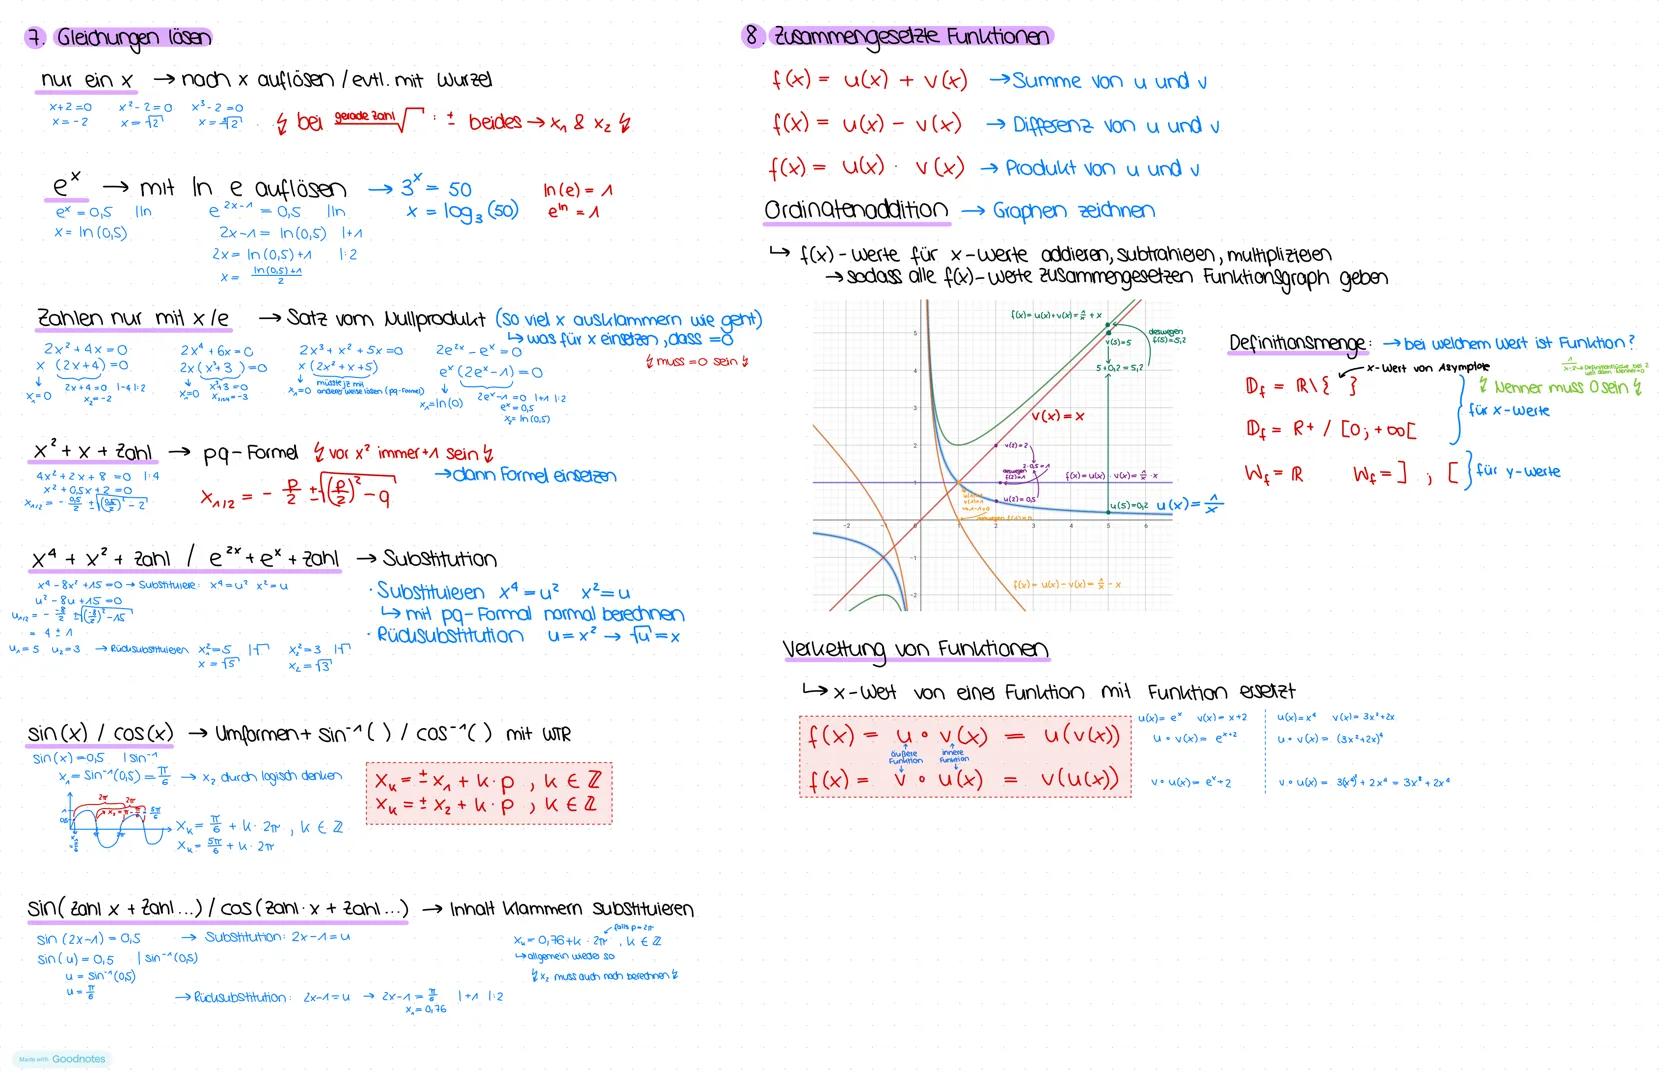 7. Gleichungen lösen
nur ein x → nach x auflösen / evtl. mit Wurzel
x+2=0 x²-2=0 x³-2=0
x=-2 x=√2 x=³√2
↯ bei gerade Zahl√ : ± beides → x₁ & x₂ ↯
eˣ → mit ln e auflösen → 3ˣ = 50 ln(e) = 1
x = log₃(50) e^ln = 1
eˣ = 0,5 |ln e^(2x-1) = 0,5 |ln
x = ln(0,5) 2x-1 = ln(0,5) |+1
2x = ln(0,5)+1 |:2
x = (ln(0,5)+1)/2
Zahlen nur mit x/e → Satz vom Nullprodukt (so viel x ausklammern wie geht)
↳ was für x einsetzen, dass =0
↯ muss =0 sein ↯
2x²+4x=0 2x⁴+6x=0 2x³+x²+5x=0 2e^(2x)-eˣ=0
x(2x+4)=0 2x(x³+3)=0 x(2x²+x+5) eˣ(2eˣ-1)=0
x₁=0 2x+4=0 |-4 |:2 x=0 x³+3=0 x₁=0 müsste jz mit anderes weise lösen (pq-Formel)
x₂=-2 x₁=ln(0) 2eˣ-1=0 |+1 |:2
eˣ=0,5
x₂=ln(0,5)
x²+x+Zahl → pq-Formel ↯ vor x² immer +1 sein ↯
→ dann Formel einsetzen
4x²+2x+8=0 |:4
x²+0,5x+2=0
x₁/₂ = -0,5/2 ± √((0,5/2)²-2)
x₁/₂ = -p/2 ± √((p/2)²-q)
x⁴+x²+Zahl / e^(2x)+eˣ+Zahl → Substitution
x⁴-8x²+15=0 → Substituiere: x⁴=u² x²=u
u²-8u+15=0
u₁/₂ = -(-8)/2 ± √((-8/2)²-15)
= 4±1
u₁=5 u₂=3 → Rücksubstituieren x₁²=5 |√ x₂²=3 |√
x=√5 x₂=√3
· Substituieren x⁴=u² x²=u
↳ mit pq-Formal normal berechnen
· Rücksubstitution u=x² → √u=x
sin(x) / cos(x) → Umformen + sin⁻¹( ) / cos⁻¹( ) mit WTR
sin(x)=0,5 |sin⁻¹
x₁=sin⁻¹(0,5)=π/6 → x₂ durch logisch denken
xₖ = ±x₁ + k·p , k ∈ ℤ
xₖ = ±x₂ + k·p , k ∈ ℤ
2π 2π
xₖ = π/6 + k·2π , k ∈ ℤ
xₖ = 5π/6 + k·2π
sin(Zahl x + Zahl...) / cos(Zahl·x + Zahl...) → Inhalt Klammern substituieren
sin(2x-1)=0,5 → Substitution: 2x-1=u
sin(u)=0,5 |sin⁻¹(0,5)
u=sin⁻¹(0,5)
u=π/6
→ Rücksubstitution: 2x-1=u → 2x-1=π/6 |+1 |:2
x₁=0,76
falls p=2π
xₖ=0,76+k·2π , k ∈ ℤ
↳ allgemein wieder so
↯ x₂ muss auch noch berechnen ↯
Made with Goodnotes
8. Zusammengesetzte Funktionen
f(x) = u(x) + v(x) → Summe von u und v
f(x) = u(x) - v(x) → Differenz von u und v
f(x) = u(x) · v(x) → Produkt von u und v
Ordinatenaddition → Graphen zeichnen
↳ f(x)-Werte für x-Werte addieren, subtrahieren, multiplizieren
→ sodass alle f(x)-Werte zusammengesetzen Funktionsgraph geben
f(x)=u(x)+v(x)=1/x+x
v(5)=5
deswegen
f(5)=5,2
5+0,2=5,2
v(x)=x
v(2)=2
2·0,5=1
deswegen
f(2)=1
f(x)=u(x)·v(x)=1/x·x
u(2)=0,5
u(5)=0,2
u(x)=1/x
f(x)=u(x)-v(x)=1/x-x
5
4
3
2
1
-1
-2
-2 -1 0 1 2 3 4 5 6
Definitionsmenge: → bei welchem Wert ist Funktion?
x-Wert von Asymptote
𝔻f = ℝ\{ }
↯ Nenner muss 0 sein ↯
𝔻f = R+ / [0;+∞[
für x-Werte
Wf = ℝ Wf = ] ; [ für y-Werte
Verkettung von Funktionen
↳ x-Wert von einer Funktion mit Funktion ersetzt
f(x) = u ∘ v(x) = u(v(x))
äußere Funktion innere Funktion
f(x) = v ∘ u(x) = v(u(x))
u(x)=eˣ v(x)=x+2
u∘v(x)=e^(x+2)
v∘u(x)=eˣ+2
u(x)=x⁴ v(x)=3x²+2x
u∘v(x)=(3x²+2x)⁴
v∘u(x)=3(x⁴)²+2x⁴=3x⁸+2x⁴